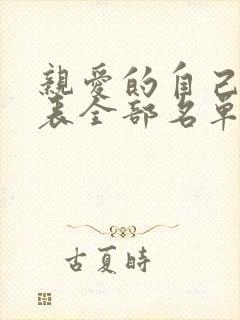 親愛的自己
表全部名單
古夏時